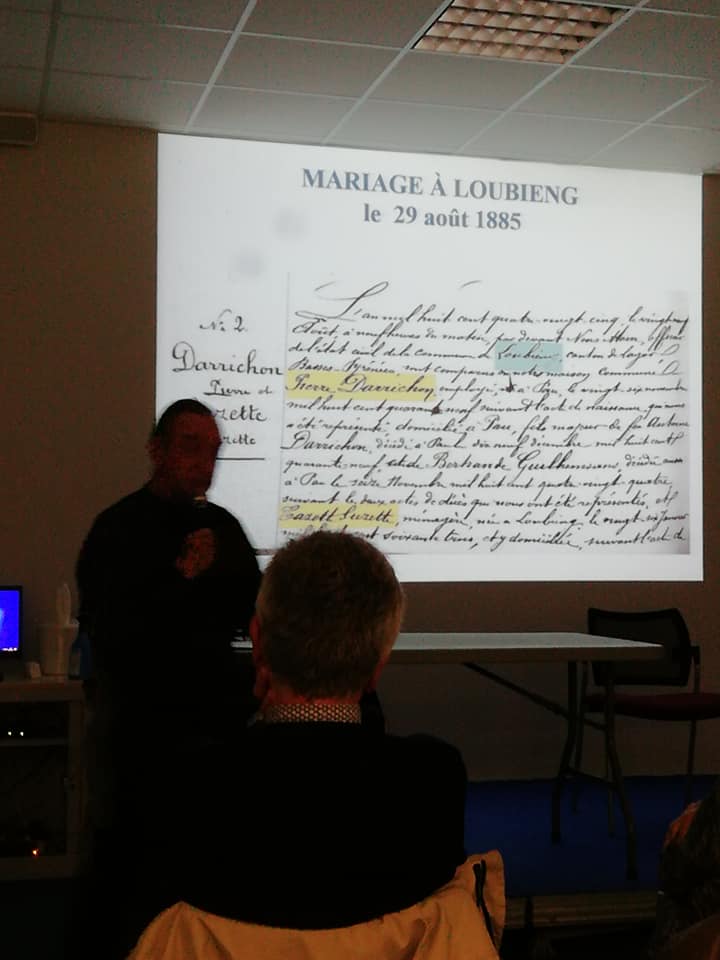 MARIAGE À LOUBIENG
le 29 août 1885
N° 2
Darrichon
Pierre et
zette
zette
L'an mil huit cent quatre-vingt cinq, le vingt neuf
Août, à neuf heures du matin, par devant Nous Maire, officier
de l'état civil de la commune de Loubieng, canton de Lagor
Basses Pyrénées, sont comparus en notre maison commune
Pierre Darrichon, employé, né à Pau, le vingt six novembre
mil huit cent quarante neuf suivant l'acte de naissance qui nous
a été représenté, domicilié à Pau, fils majeur de feu Antoine
Darrichon, décédé à Pau le dix neuf décembre mil huit cent
quarante-neuf, et de Bertrande décédée aussi
à Pau le seize Novembre mil huit cent quatre-vingt quatre
suivant les deux actes de décès qui nous ont été représentés, et
Cazett Suzette, ménagère, née à Loubieng, le vingt six Janvier
mil huit cent soixante trois, et y domiciliée, suivant l'acte de